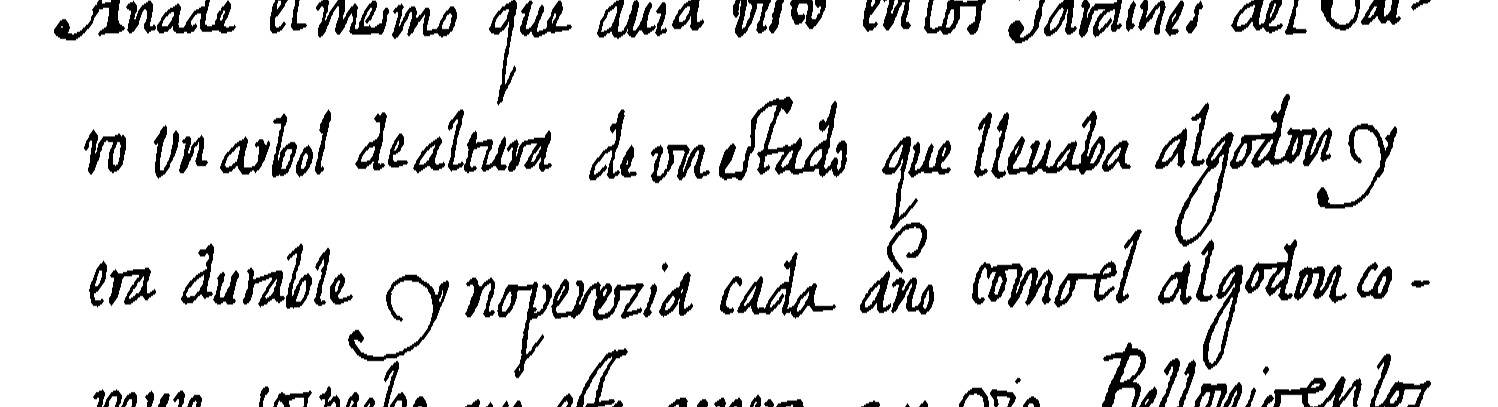 Añade el mesmo que auia visto en los Jardines del Cai-
ro vn arbol de altura de vn estado que lleuaba algodon y
era durable y no perezia cada año como el algodon co-
mun sospecho en este genero Bellonio en los